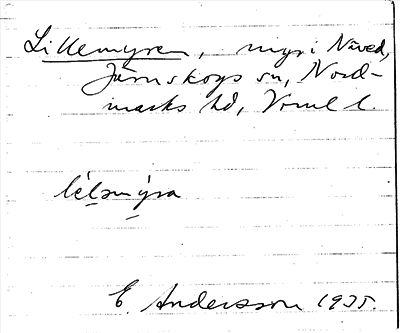 Lillemyren, myr i Näved,
Järnskogs sn, Nord-
marks hd, Vrml l.
lélsmýra
E. Andersson 1935.